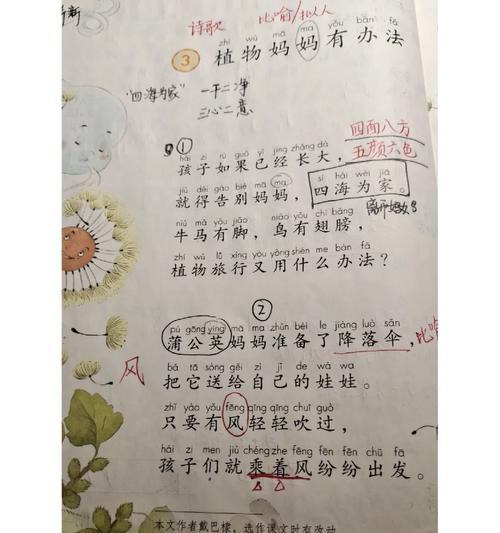 诗歌 比喻/拟人
zhí wù mā ma yǒu bàn fǎ
3 植物妈妈有办法
"四海为家" 一干二净
三心二意
①
四面八方
五颜六色
hái zi rú guǒ yǐ jīng zhǎng dà
孩子如果已经长大，
jiù děi gào bié mā ma sì hǎi wéi jiā
就得告别妈妈，四海为家。
离开妈妈
niú mǎ yǒu jiǎo niǎo yǒu chì bǎng
牛马有脚，鸟有翅膀，
zhí wù lǚ xíng yòu yòng shén me bàn fǎ
植物旅行又用什么办法？
②
pú gōng yīng mā ma zhǔn bèi le jiàng luò sǎn
蒲公英妈妈准备了降落伞， 比喻
风
bǎ tā sòng gěi zì jǐ de wá wa
把它送给自己的娃娃。
zhǐ yào yǒu fēng qīng qīng chuī guò
只要有风轻轻吹过，
hái zi men jiù chéng zhe fēng fēn fēn chū fā
孩子们就乘着风纷纷出发。
本文作者戴巴棣，选作课文时有改动